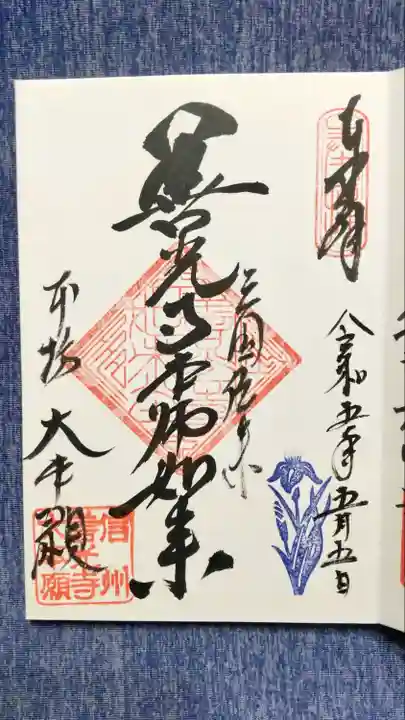 奉拝
令和五年五月五日
三国
善光寺本師如来
本坊 大本願
信州
善光寺
大本願